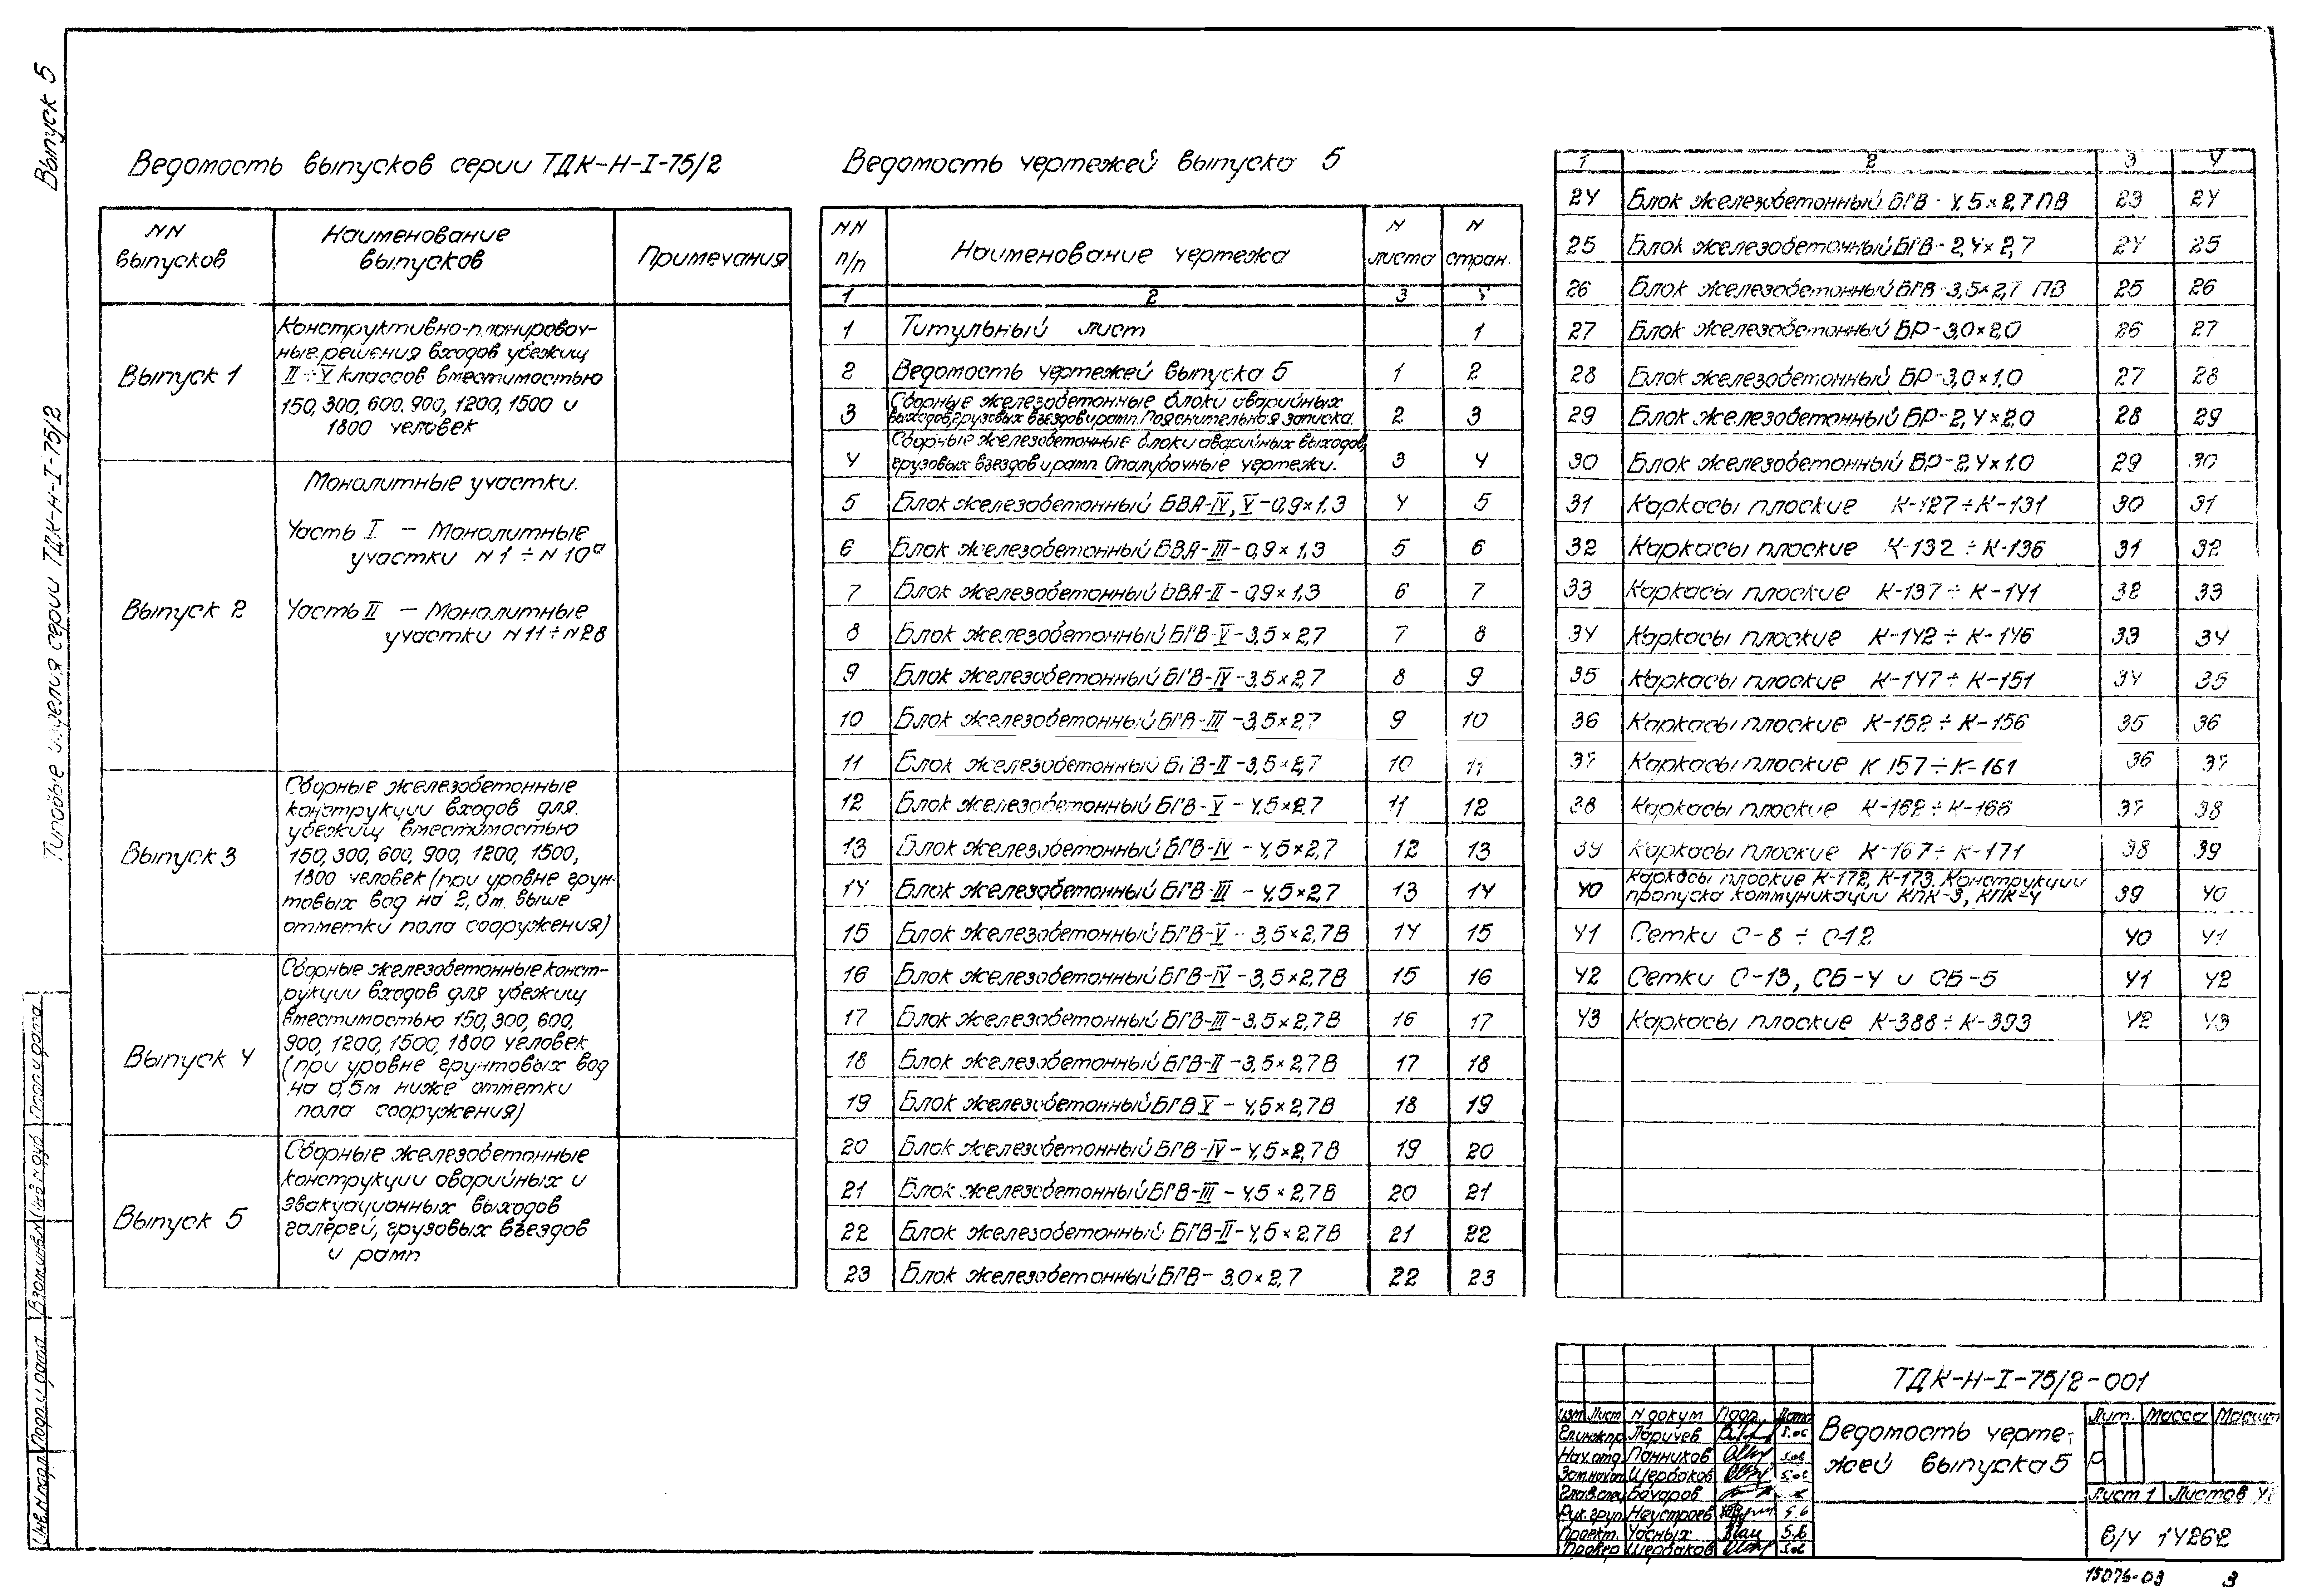 Выпуск 5
Типовые изделия серии ТДК-Н-I-75/2
Ведомость выпусков серии ТДК-Н-I-75/2
NN выпусков | Наименование выпусков | Примечания
Выпуск 1
Конструктивно-планировоч-
ные решения входов убежищ
II÷V классов вместимостью
150, 300, 600, 900, 1200, 1500 и
1800 человек
Выпуск 2
Монолитные участки.
Часть I – Монолитные
участки N1÷N10а
Часть II – Монолитные
участки N11÷N28
Выпуск 3
Сборные железобетонные
конструкции входов для
убежищ вместимостью
150, 300, 600, 900, 1200, 1500,
1800 человек (при уровне грун-
товых вод на 2,0м. выше
отметки пола сооружения)
Выпуск 4
Сборные железобетонные конст-
рукции входов для убежищ
вместимостью 150, 300, 600,
900, 1200, 1500, 1800 человек
(при уровне грунтовых вод
на 0,5м ниже отметки
пола сооружения)
Выпуск 5
Сборные железобетонные
конструкции аварийных и
эвакуационных выходов
галерей, грузовых въездов
и рамп
Ведомость чертежей выпуска 5
NN п/п | Наименование чертежа | N листа | N стран.
1 2 3 4
1 Титульный лист 1
2 Ведомость чертежей выпуска 5 1 2
3 Сборные железобетонные блоки аварийных
выходов, грузовых въездов и рамп. Пояснительная записка. 2 3
4 Сборные железобетонные блоки аварийных выходов,
грузовых въездов и рамп. Опалубочные чертежи. 3 4
5 Блок железобетонный БВА-IV, V-0,9×1,3 4 5
6 Блок железобетонный БВА-III-0,9×1,3 5 6
7 Блок железобетонный БВА-II-0,9×1,3 6 7
8 Блок железобетонный БГВ-V-3,5×2,7 7 8
9 Блок железобетонный БГВ-IV-3,5×2,7 8 9
10 Блок железобетонный БГВ-III-3,5×2,7 9 10
11 Блок железобетонный БГВ-II-3,5×2,7 10 11
12 Блок железобетонный БГВ-V-4,5×2,7 11 12
13 Блок железобетонный БГВ-IV-4,5×2,7 12 13
14 Блок железобетонный БГВ-III-4,5×2,7 13 14
15 Блок железобетонный БГВ-V-3,5×2,7В 14 15
16 Блок железобетонный БГВ-IV-3,5×2,7В 15 16
17 Блок железобетонный БГВ-III-3,5×2,7В 16 17
18 Блок железобетонный БГВ-II-3,5×2,7В 17 18
19 Блок железобетонный БГВ V-4,5×2,7В 18 19
20 Блок железобетонный БГВ-IV-4,5×2,7В 19 20
21 Блок железобетонный БГВ-III-4,5×2,7В 20 21
22 Блок железобетонный БГВ-II-4,5×2,7В 21 22
23 Блок железобетонный БГВ-3,0×2,7 22 23
1 2 3 4
24 Блок железобетонный БГВ-4,5×2,7ПВ 23 24
25 Блок железобетонный БГВ-2,4×2,7 24 25
26 Блок железобетонный БГВ-3,5×2,7 ПВ 25 26
27 Блок железобетонный БР-3,0×2,0 26 27
28 Блок железобетонный БР-3,0×1,0 27 28
29 Блок железобетонный БР-2,4×2,0 28 29
30 Блок железобетонный БР-2,4×1,0 29 30
31 Каркасы плоские К-127÷К-131 30 31
32 Каркасы плоские К-132÷К-136 31 32
33 Каркасы плоские К-137÷К-141 32 33
34 Каркасы плоские К-142÷К-146 33 34
35 Каркасы плоские К-147÷К-151 34 35
36 Каркасы плоские К-152÷К-156 35 36
37 Каркасы плоские К 157÷К-161 36 37
38 Каркасы плоские К-162÷К-166 37 38
39 Каркасы плоские К-167÷К-171 38 39
40 Каркасы плоские К-172, К-173. Конструкции
пропуска коммуникации КПК-3, КПК-4 39 40
41 Сетки С-8÷С-12 40 41
42 Сетки С-13, СБ-4 и СБ-5 41 42
43 Каркасы плоские К-388÷К-393 42 43
ТДК-Н-I-75/2-001
Ведомость черте-
жей выпуска 5
Изм Лист N докум Подп. Дата
Гл.инж.пр. Ларичев
Нач.отд Панников
Зам.нач.от Щербаков
Глав.спец Бочаров
Рук.груп Неустроев
Проект. Часных
Провер Щербаков
Лит. Масса Масшт
Р
Лист 1 Листов
в/ч 14262
15076-03 3
Инв.N подл Подп. и дата Взам.инв.N Инв N дуб Подп и дата